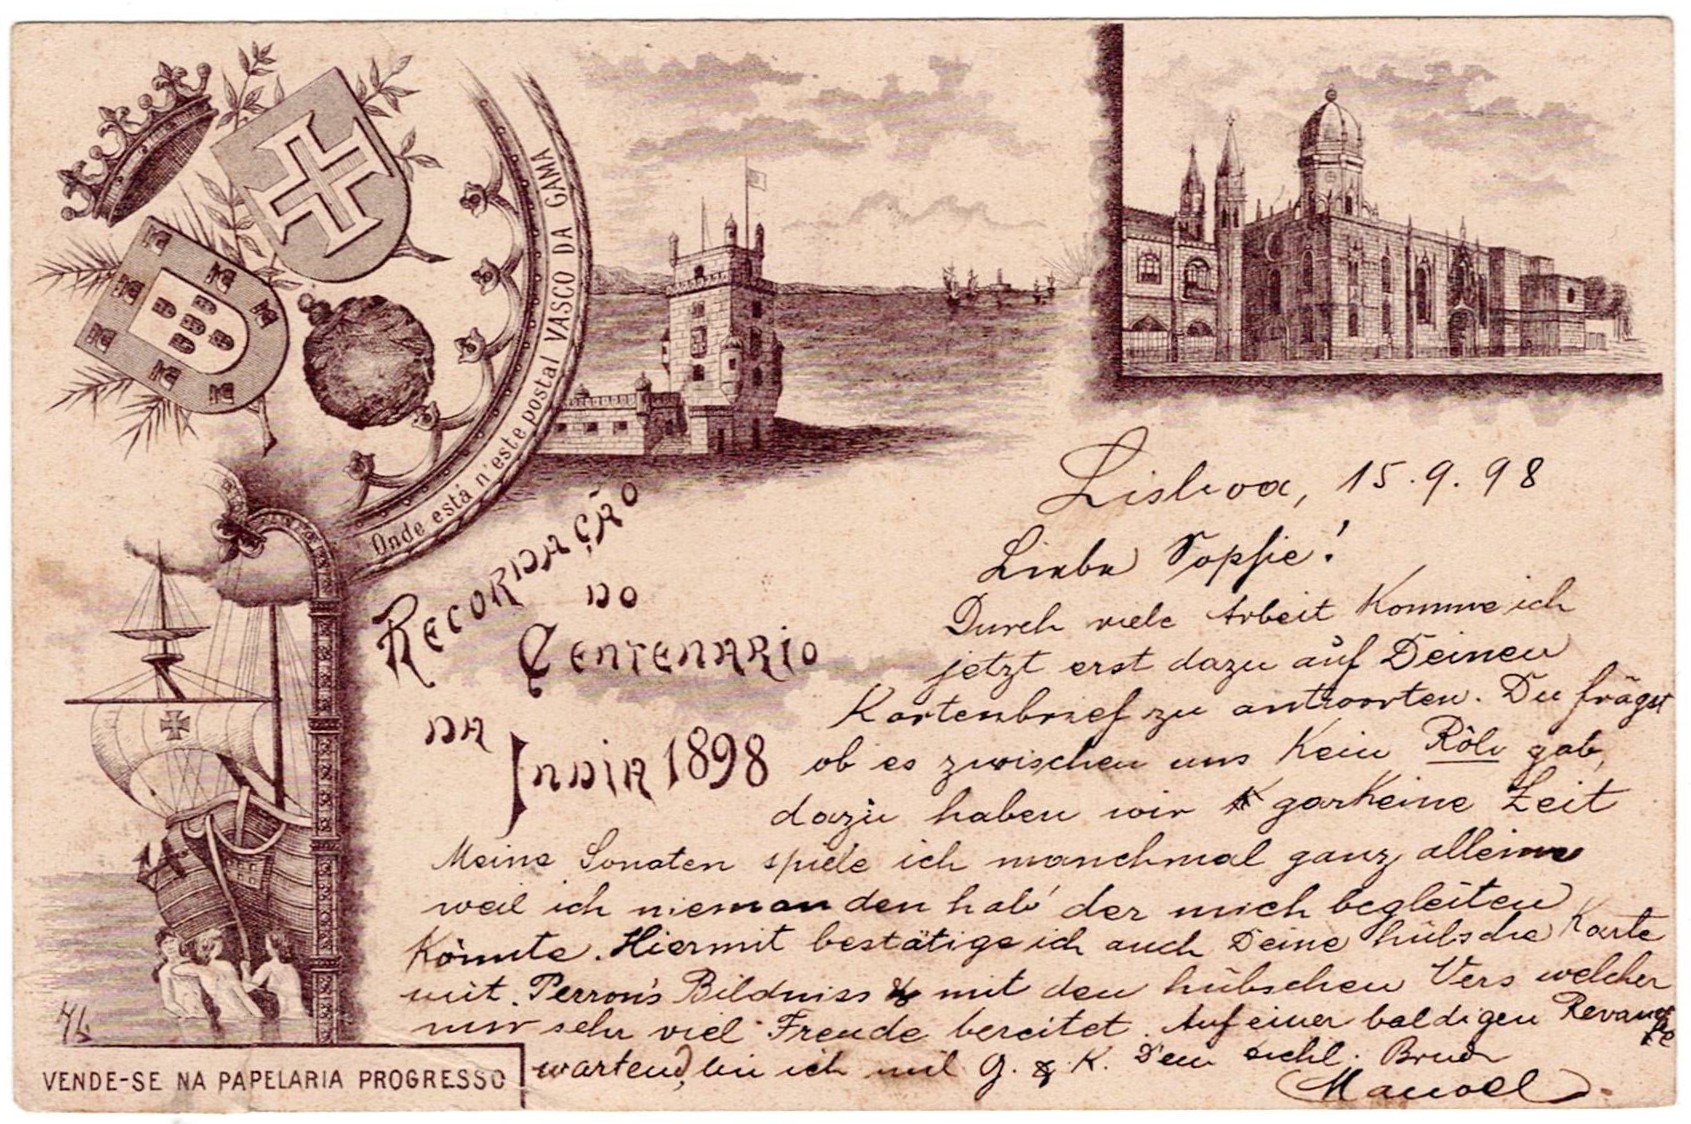 Onde está n'este postal VASCO DA GAMA
RECORDAÇÃO
DO
CENTENARIO
DA
INDIA 1898
Lisboa, 15.9.98
Liebe Sophie!
Durch viele Arbeit komme ich
jetzt erst dazu auf Deinen
Kartenbrief zu antworten. Du frägst
ob es zwischen uns kein gab,
dazu haben wir garkeine Zeit
Meine Sonaten spiele ich manchmal ganz allein
weil ich niemanden hab' der mich begleiten
könnte. Hiermit bestätige ich auch Deine hübsche Karte
mit Perron's Bildniss & mit den hübschen Vers welcher
mir sehr viel Freude bereitet. Auf einer baldigen Revange
wartend, bin ich mit G. & K. Dein Bruder
Manoel
VENDE-SE NA PAPELARIA PROGRESSO